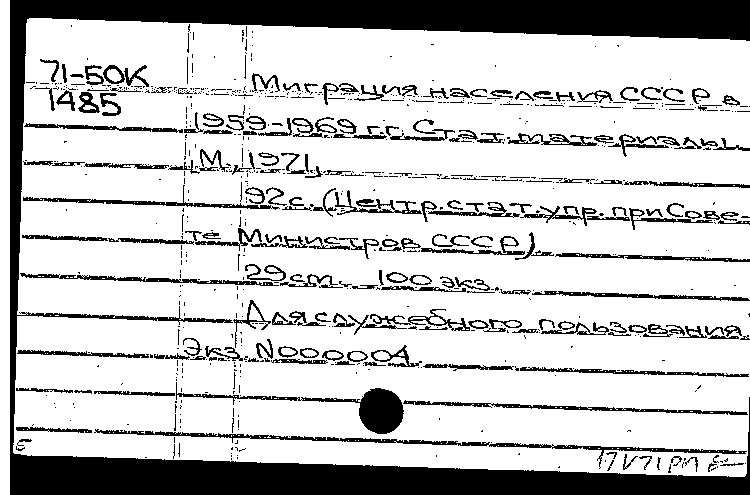 71-50К
1485
Миграция населения СССР в
1959-1969 г.г. Стат. материалы.
М., 1971,
92с. (Центр. стат. упр. при Сове-
те Министров СССР)
29см. 100 экз.
Для служебного пользования
Экз. N000004.
17 V 71 рп